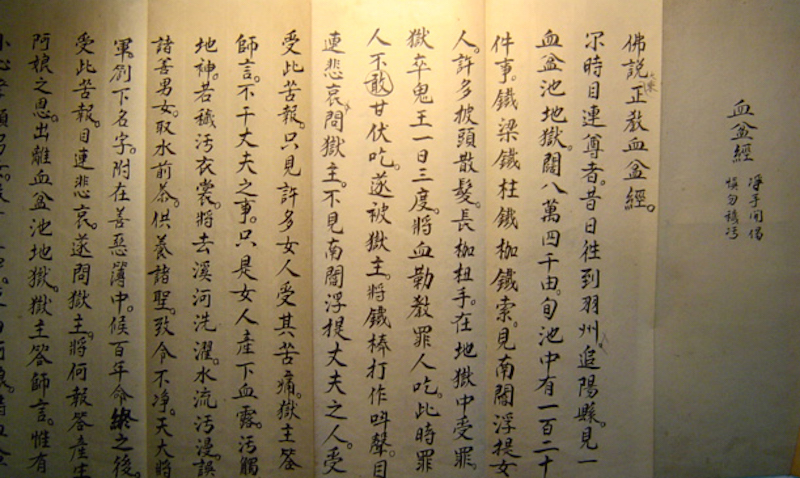 血盆經
淨手開偈
慎勿穢污
佛說正教血盆經。
大藏
尔時目連尊者。昔日徃到羽州。追陽縣。見一
血盆池地獄。闊八萬四千由。旬池中有一百二十
件事。鐵梁鐵柱鐵枷鐵索。見南閻浮提女
人。許多披頭散髮。長枷杻手。在地獄中受罪。
獄卒鬼王一日三度。將血勒教罪人吃。此時罪
人不敢甘伏吃。遂被獄主。將鐵棒打作呌聲。目
連悲哀。問獄主。不見南閻浮提丈夫之人。受
受此苦報。只見許多女人受其苦痛。獄主答
師言。不干丈夫之事。只是女人產下血露。污觸
地神。若穢污衣裳。將去溪河洗濯。水流污漫。誤
諸善男女。取水煎茶。供養諸聖。致令不淨。天大將
軍。劄下名字。附在善惡簿中。候百年命終之後。
受此苦報。目連悲哀。遂問獄主。將何報答產生
阿娘之恩。出離血盆池地獄。獄主答師言。惟有